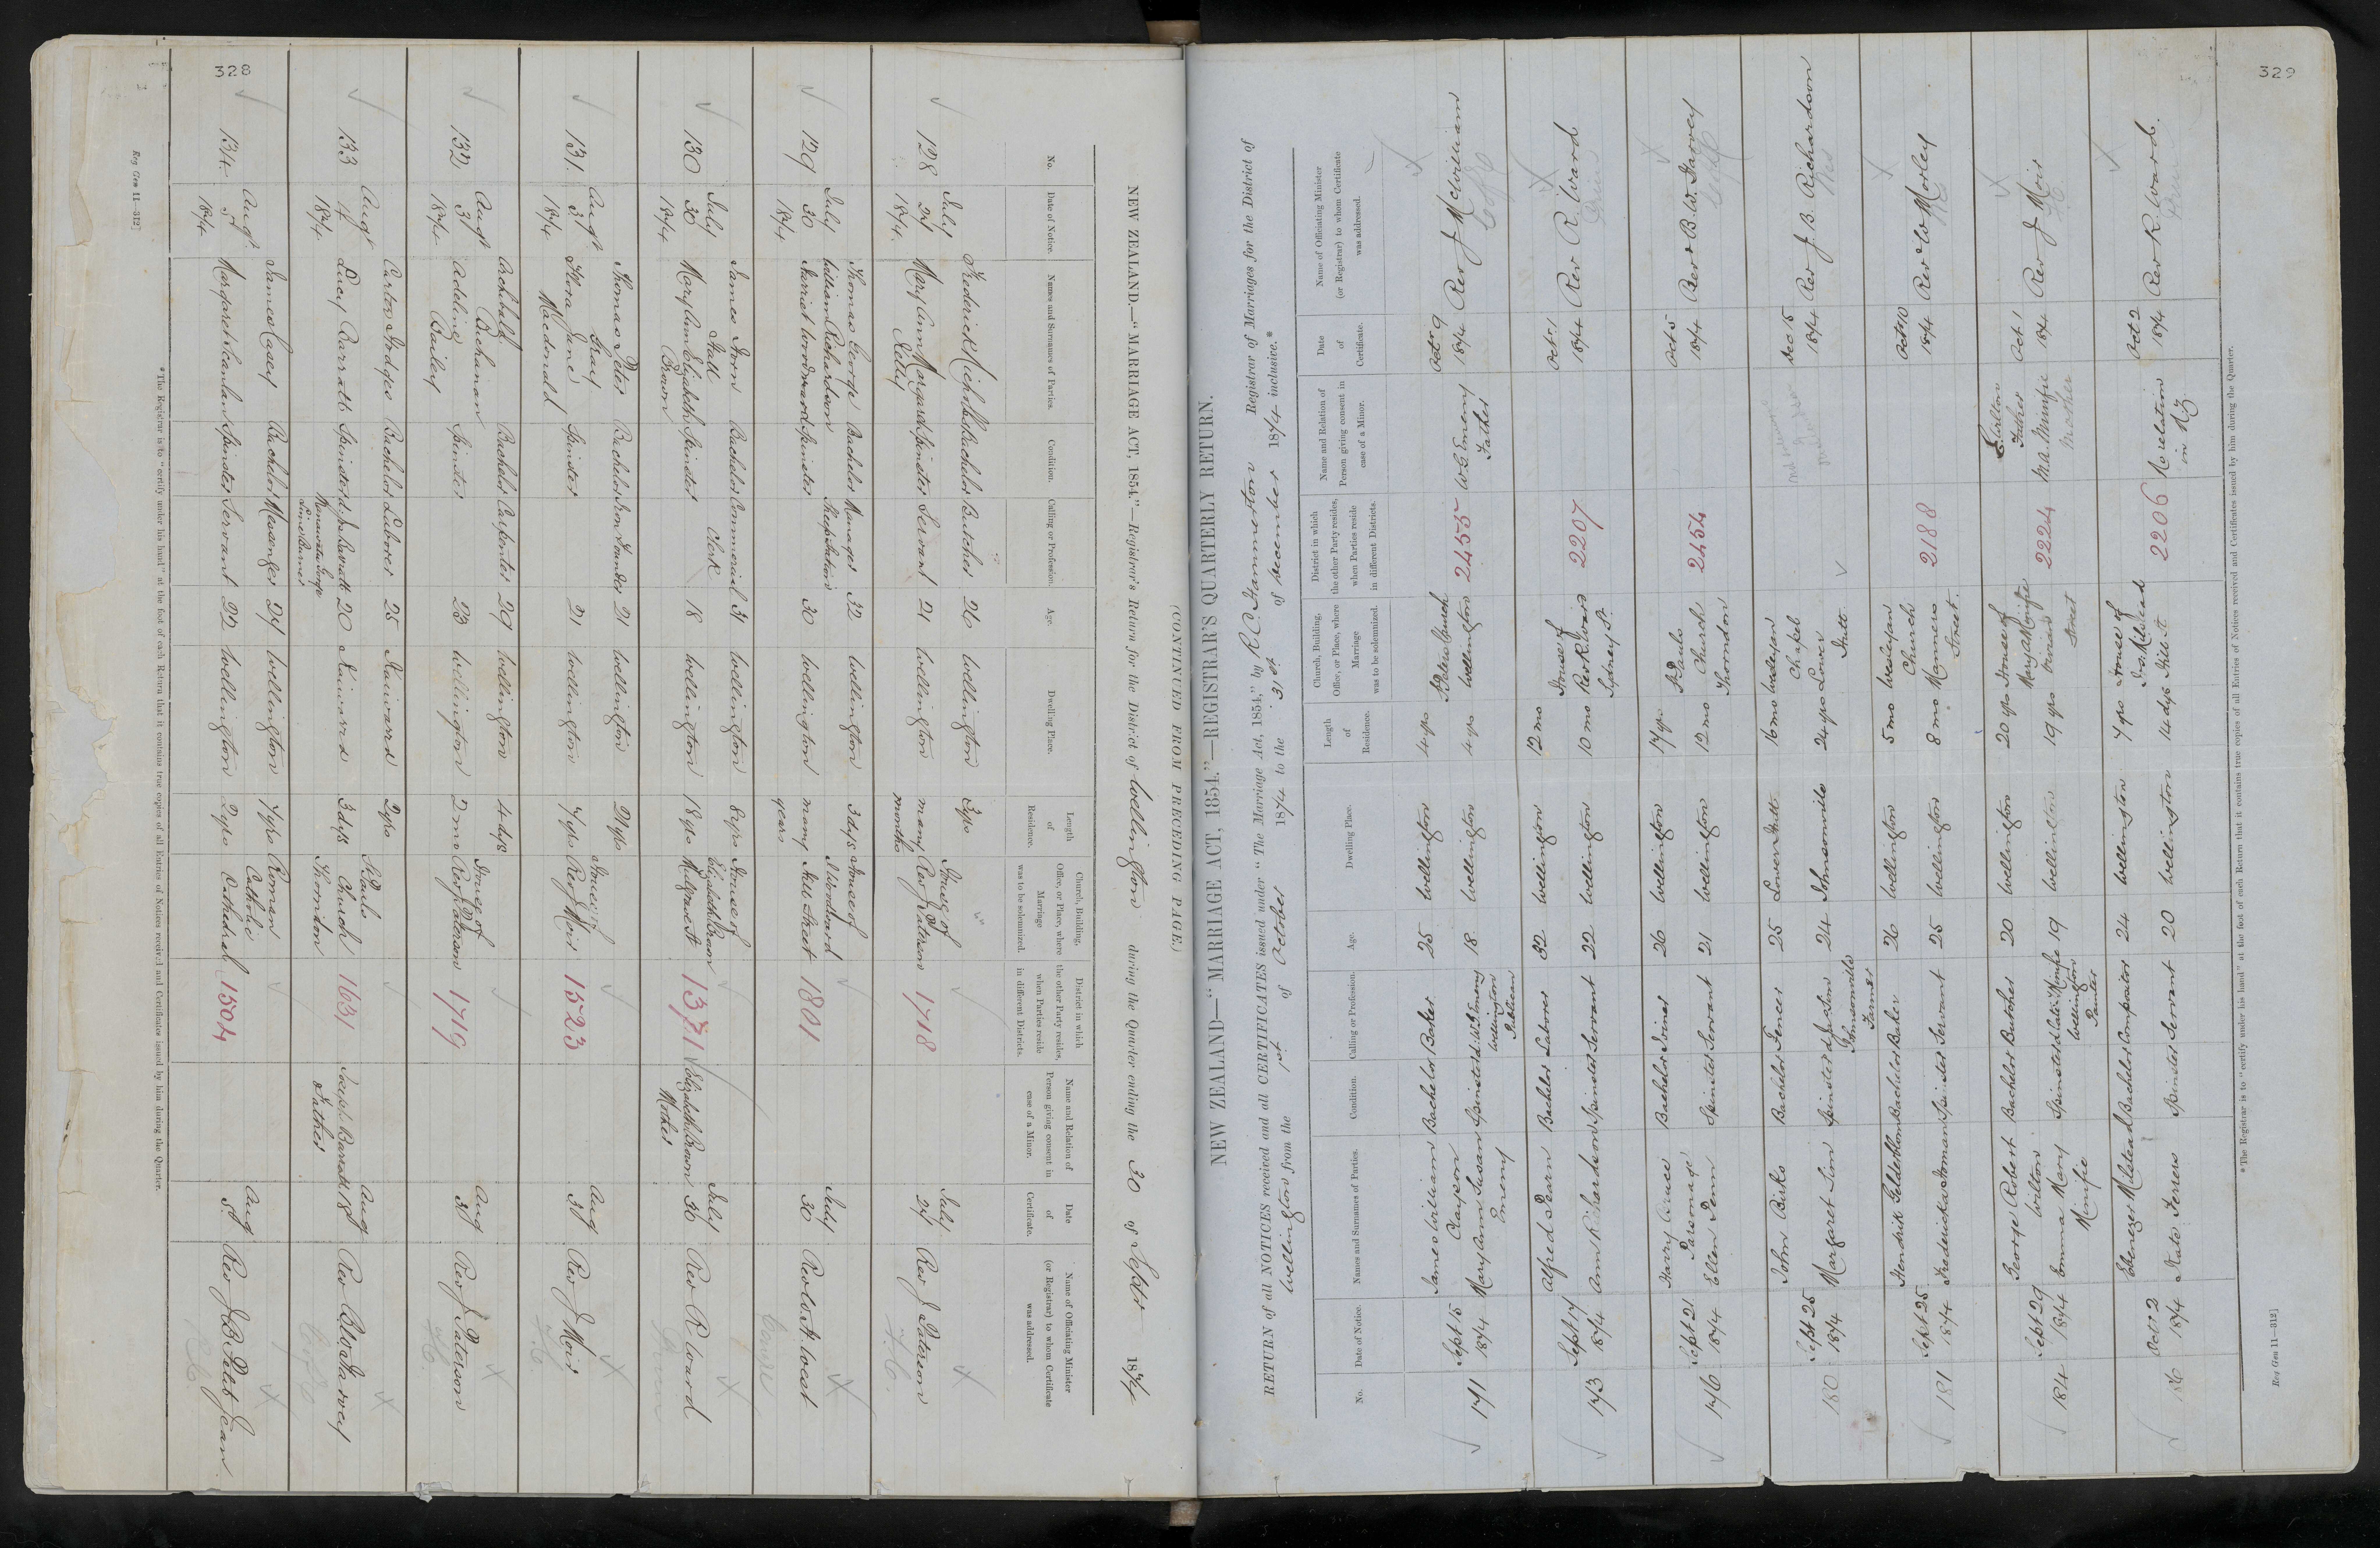 328
(CONTINUED FROM PRECEDING PAGE.)
NEW ZEALAND—"MARRIAGE ACT, 1854."—Registrar's Return for the District of Wellington during the Quarter ending the 30 of Septr 1874
No. Date of Notice. Names and Surnames of Parties. Condition. Calling or Profession. Age. Dwelling Place. Length of Residence. Church, Building, Office, or Place, where Marriage was to be solemnized. District in which the other Party resides, when Parties reside in different Districts. Name and Relation of Person giving consent in case of a Minor. Date of Certificate. Name of Officiating Minister (or Registrar) to whom Certificate was addressed.
128 July 27 1874
Frederick Bachelor Butcher 26 Wellington 3 yrs House of
Mary Ann Margaret Spinster Servant 21 Wellington many months Rev J Paterson 1718 July 27 Rev J Paterson
129 July 30 1874
Thomas George William Richardson Bachelor Manager Sheep Station 32 Wellington 3 dys House of
Harriet Woodward Spinster 30 Wellington many years J Woodward Mill Street 1801 July 30 Rev W H West
130 July 30 1874
James Iron Hall Bachelor Commercial Clerk 31 Wellington 8 yrs House of
Mary Ann Elizabeth Brown Spinster 18 Wellington 18 yrs Elizabeth Brown Mulgrave St 1371 Elizabeth Brown Mother July 30 Rev R Ward
131 Augt 3 1874
Thomas Peter Gray Bachelor Iron Founder 21 Wellington 21 yrs House of
Flora Jane Macdonald Spinster 21 Wellington 7 yrs Rev J Moir 1523 Aug 3 Rev J Moir
132 Augt 3 1874
Archibald Buchanan Bachelor Carpenter 29 Wellington 4 dys House of
Adeline Bailey Spinster 23 Wellington 2 mo Rev J Paterson 1719 Aug 3 Rev J Paterson
133 Augt 4 1874
Carton Hodges Bachelor Laborer 25 Kaiwarra 2 yrs St Pauls
Lucy Barratt Spinster d. Jos Barratt Lime Burner 20 Kaiwarra 3 dys Church Thorndon 1631 Joseph Barratt Father Augt 18 Rev B W Harvey
134 Augt 5 1874
James Casey Bachelor Messenger 27 Wellington 7 yrs Roman
Margaret Scanlan Spinster Servant 22 Wellington 2 yrs Catholic Cathedral 1504 Aug 5 Rev J B Petit Jean
*The Registrar is to "certify under his hand" at the foot of each Return that it contains true copies of all Entries of Notices received and Certificates issued by him during the Quarter.
Reg Gen 11—312]
329
NEW ZEALAND—"MARRIAGE ACT, 1854."—REGISTRAR'S QUARTERLY RETURN.
RETURN of all NOTICES received and all CERTIFICATES issued under "The Marriage Act, 1854," by R. C. Hammerton Registrar of Marriages for the District of
Wellington from the 1st of October 1874 to the 31st of December 1874 inclusive.*
No. Date of Notice. Names and Surnames of Parties. Condition. Calling or Profession. Age. Dwelling Place. Length of Residence. Church, Building, Office, or Place, where Marriage was to be solemnized. District in which the other Party resides, when Parties reside in different Districts. Name and Relation of Person giving consent in case of a Minor. Date of Certificate. Name of Officiating Minister (or Registrar) to whom Certificate was addressed.
171 Sept 15 1874
James William Claypon Bachelor Baker 25 Wellington 4 yrs St Peters Church
Mary Ann Susan Emeny Spinster d. W. G. Emeny Wellington Publican 18 Wellington 4 yrs Wellington 2455 W. G. Emeny Father Octr 9 1874 Rev J McWilliam
173 Sept 17 1874
Alfred Pearn Bachelor Laborer 32 Wellington 12 mo House of
Ann Richardson Spinster Servant 22 Wellington 10 mo Rev R Ward Sydney St 2207 Oct 1 1874 Rev R. Ward
176 Sept 21 1874
Harry Parsonage Bachelor Joiner 26 Wellington 17 yrs St Pauls
Ellen Penn Spinster Servant 21 Wellington 12 mo Church Thorndon 2454 Oct 5 1874 Rev B. W. Harvey
180 Sept 25 1874
John Birks Bachelor Fencer 25 Lower Hutt 16 mo Wesleyan Chapel
Margaret Sim Spinster Johnsonville Farmer 24 Johnsonville 24 yrs Lower Hutt Dec 15 1874 Rev J. B. Richardson
181 Sept 25 1874
Hendrik Gelderblom Bachelor Baker 26 Wellington 5 mo Wesleyan Church
Fredericka Homan Spinster Servant 25 Wellington 8 mo Manners Street 2188 Octr 10 1874 Rev W Morley
184 Sept 29 1874
George Robert Wilton Bachelor Butcher 20 Wellington 20 yrs House of Father
Emma Mary Minifie Spinster Wellington Painter 19 Wellington 19 yrs Mary A Minifie Street 2224 M. A. Minifie Mother Oct 1 1874 Rev J Moir
186 Oct 2 1874
Ebenezer Milstead Bachelor Compositor 24 Wellington 7 yrs House of
Kate Ferrers Spinster Servant 20 Wellington 14 dys Hill St 2206 No relation in NZ Oct 2 1874 Rev R. Ward.
*The Registrar is to "certify under his hand" at the foot of each Return that it contains true copies of all Entries of Notices received and Certificates issued by him during the Quarter.
Reg Gen 11—312]